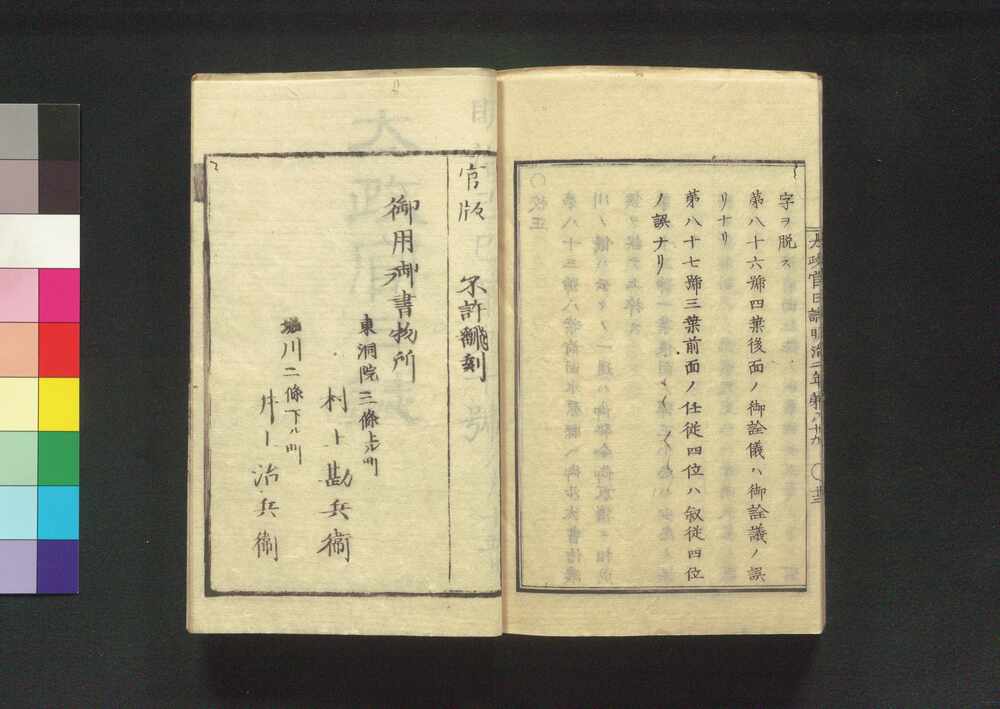 字ヲ脱ス
第八十六號四葉後面ノ御詮儀ハ御詮議ノ誤
リナリ
第八十七號三葉前面ノ任従四位ハ叙従四位
ノ誤ナリ
太政官日誌明治二年第八十九
官版 不許飜刻
御用御書物所
東洞院三條上ル町
村上勘兵衞
堀川二條下ル町
井上治兵衞